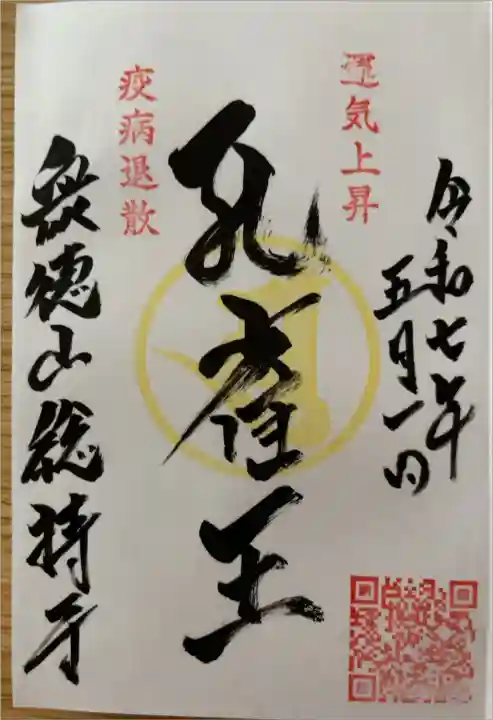 運気上昇
令和七年
五月一日
孔雀王
疫病退散
衆徳山総持寺